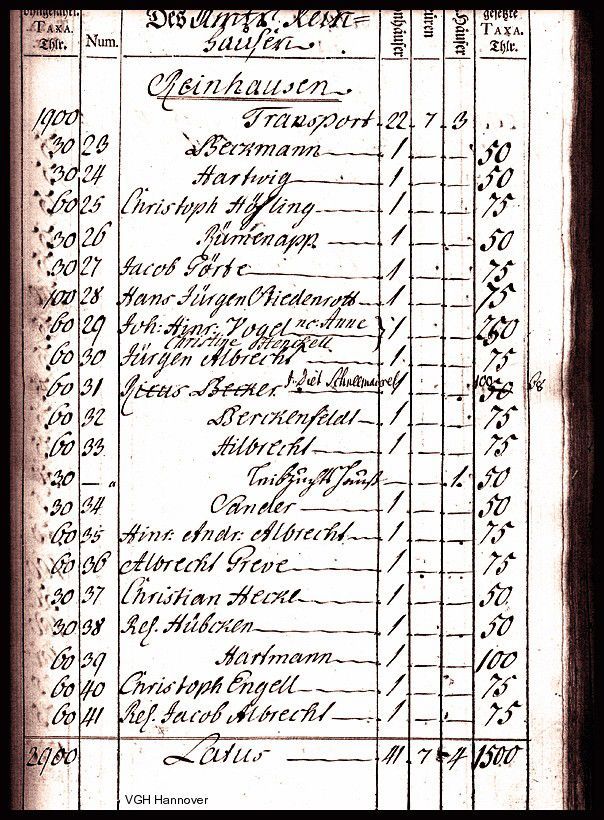 TAXA. Thlr. Num. Des Amts Rein=
hausen häuser Häuser gesetzte TAXA. Thlr.
Reinhausen
1900 Transport 22 7 3
30 23 Beckmann 1 50
30 24 Hartwig 1 50
60 25 Christoph 1 75
30 26 Rümenapp 1 50
30 27 Jacob Görte 1 75
100 28 Hans Jürgen Riedenrott 1 75
60 29 Joh: Hinr: Vogel nc: Anne 1
Christine
60 30 Jürgen Albrecht 1 75
60 31 Becker 1 100 50 68
60 32 Berckenfeldt 1 75
60 33 Hilbrecht 1 75
30 — " Leibzuchts Hauß 1. 50
30 34 Sander 1 50
60 35 Hinr: Andr: Albrecht 1 75
60 36 Albrecht Greve 1 75
30 37 Christian Hecke 1 50
30 38 Rel. Hübcken 1 50
60 39 Hartmann 1 100
60 40 Christoph Engell 1 75
60 41 Rel. Jacob Albrecht 1 75
2900 Latus 41 7 4 1500
VGH Hannover